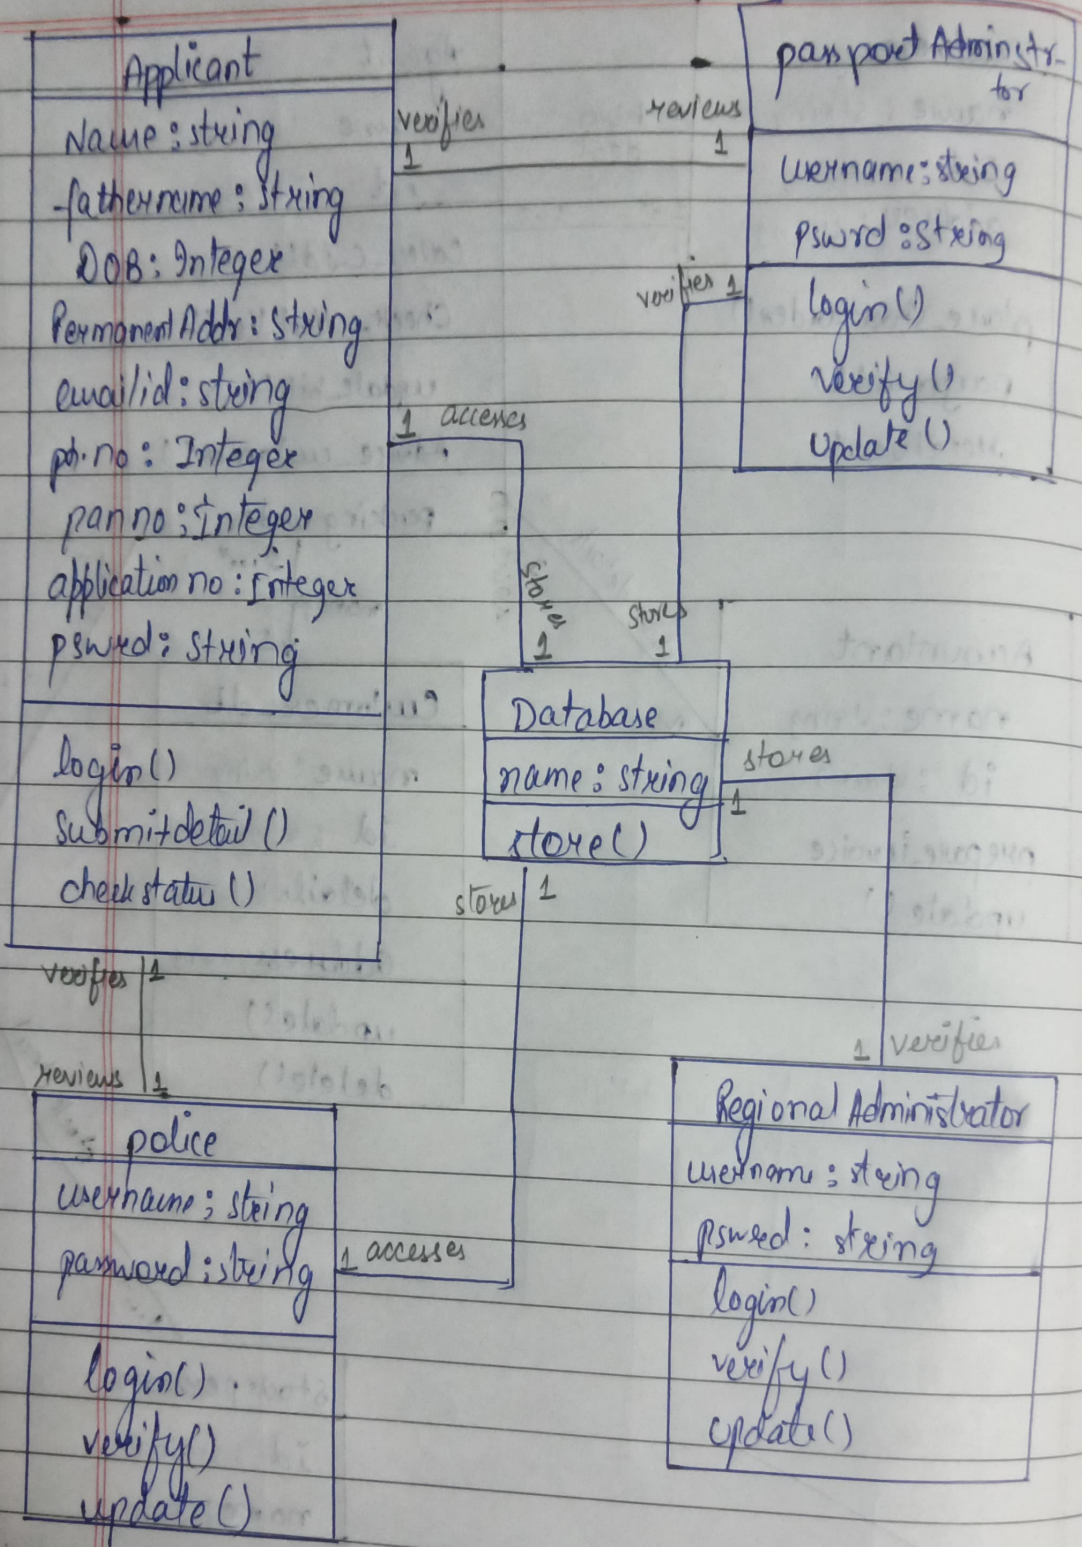 Applicant
Name : string
fathername : string
DOB : Integer
Permanent Addr : string
email id : string
ph.no : Integer
pan no : Integer
application no : Integer
pswrd : string
login()
submit detail ()
check status ()
verifies
1
reviews
1
passport Adminstr-
tor
username : string
pswrd : string
login()
verify()
update()
verifies 1
1 accesses
stores
1
stores
1
Database
name : string
store()
stores
1
stores 1
1 verifies
verifies 1
reviews 1
police
username : string
password : string
1 accesses
login()
verify()
update()
Regional Administrator
username : string
pswrd : string
login()
verify()
update()